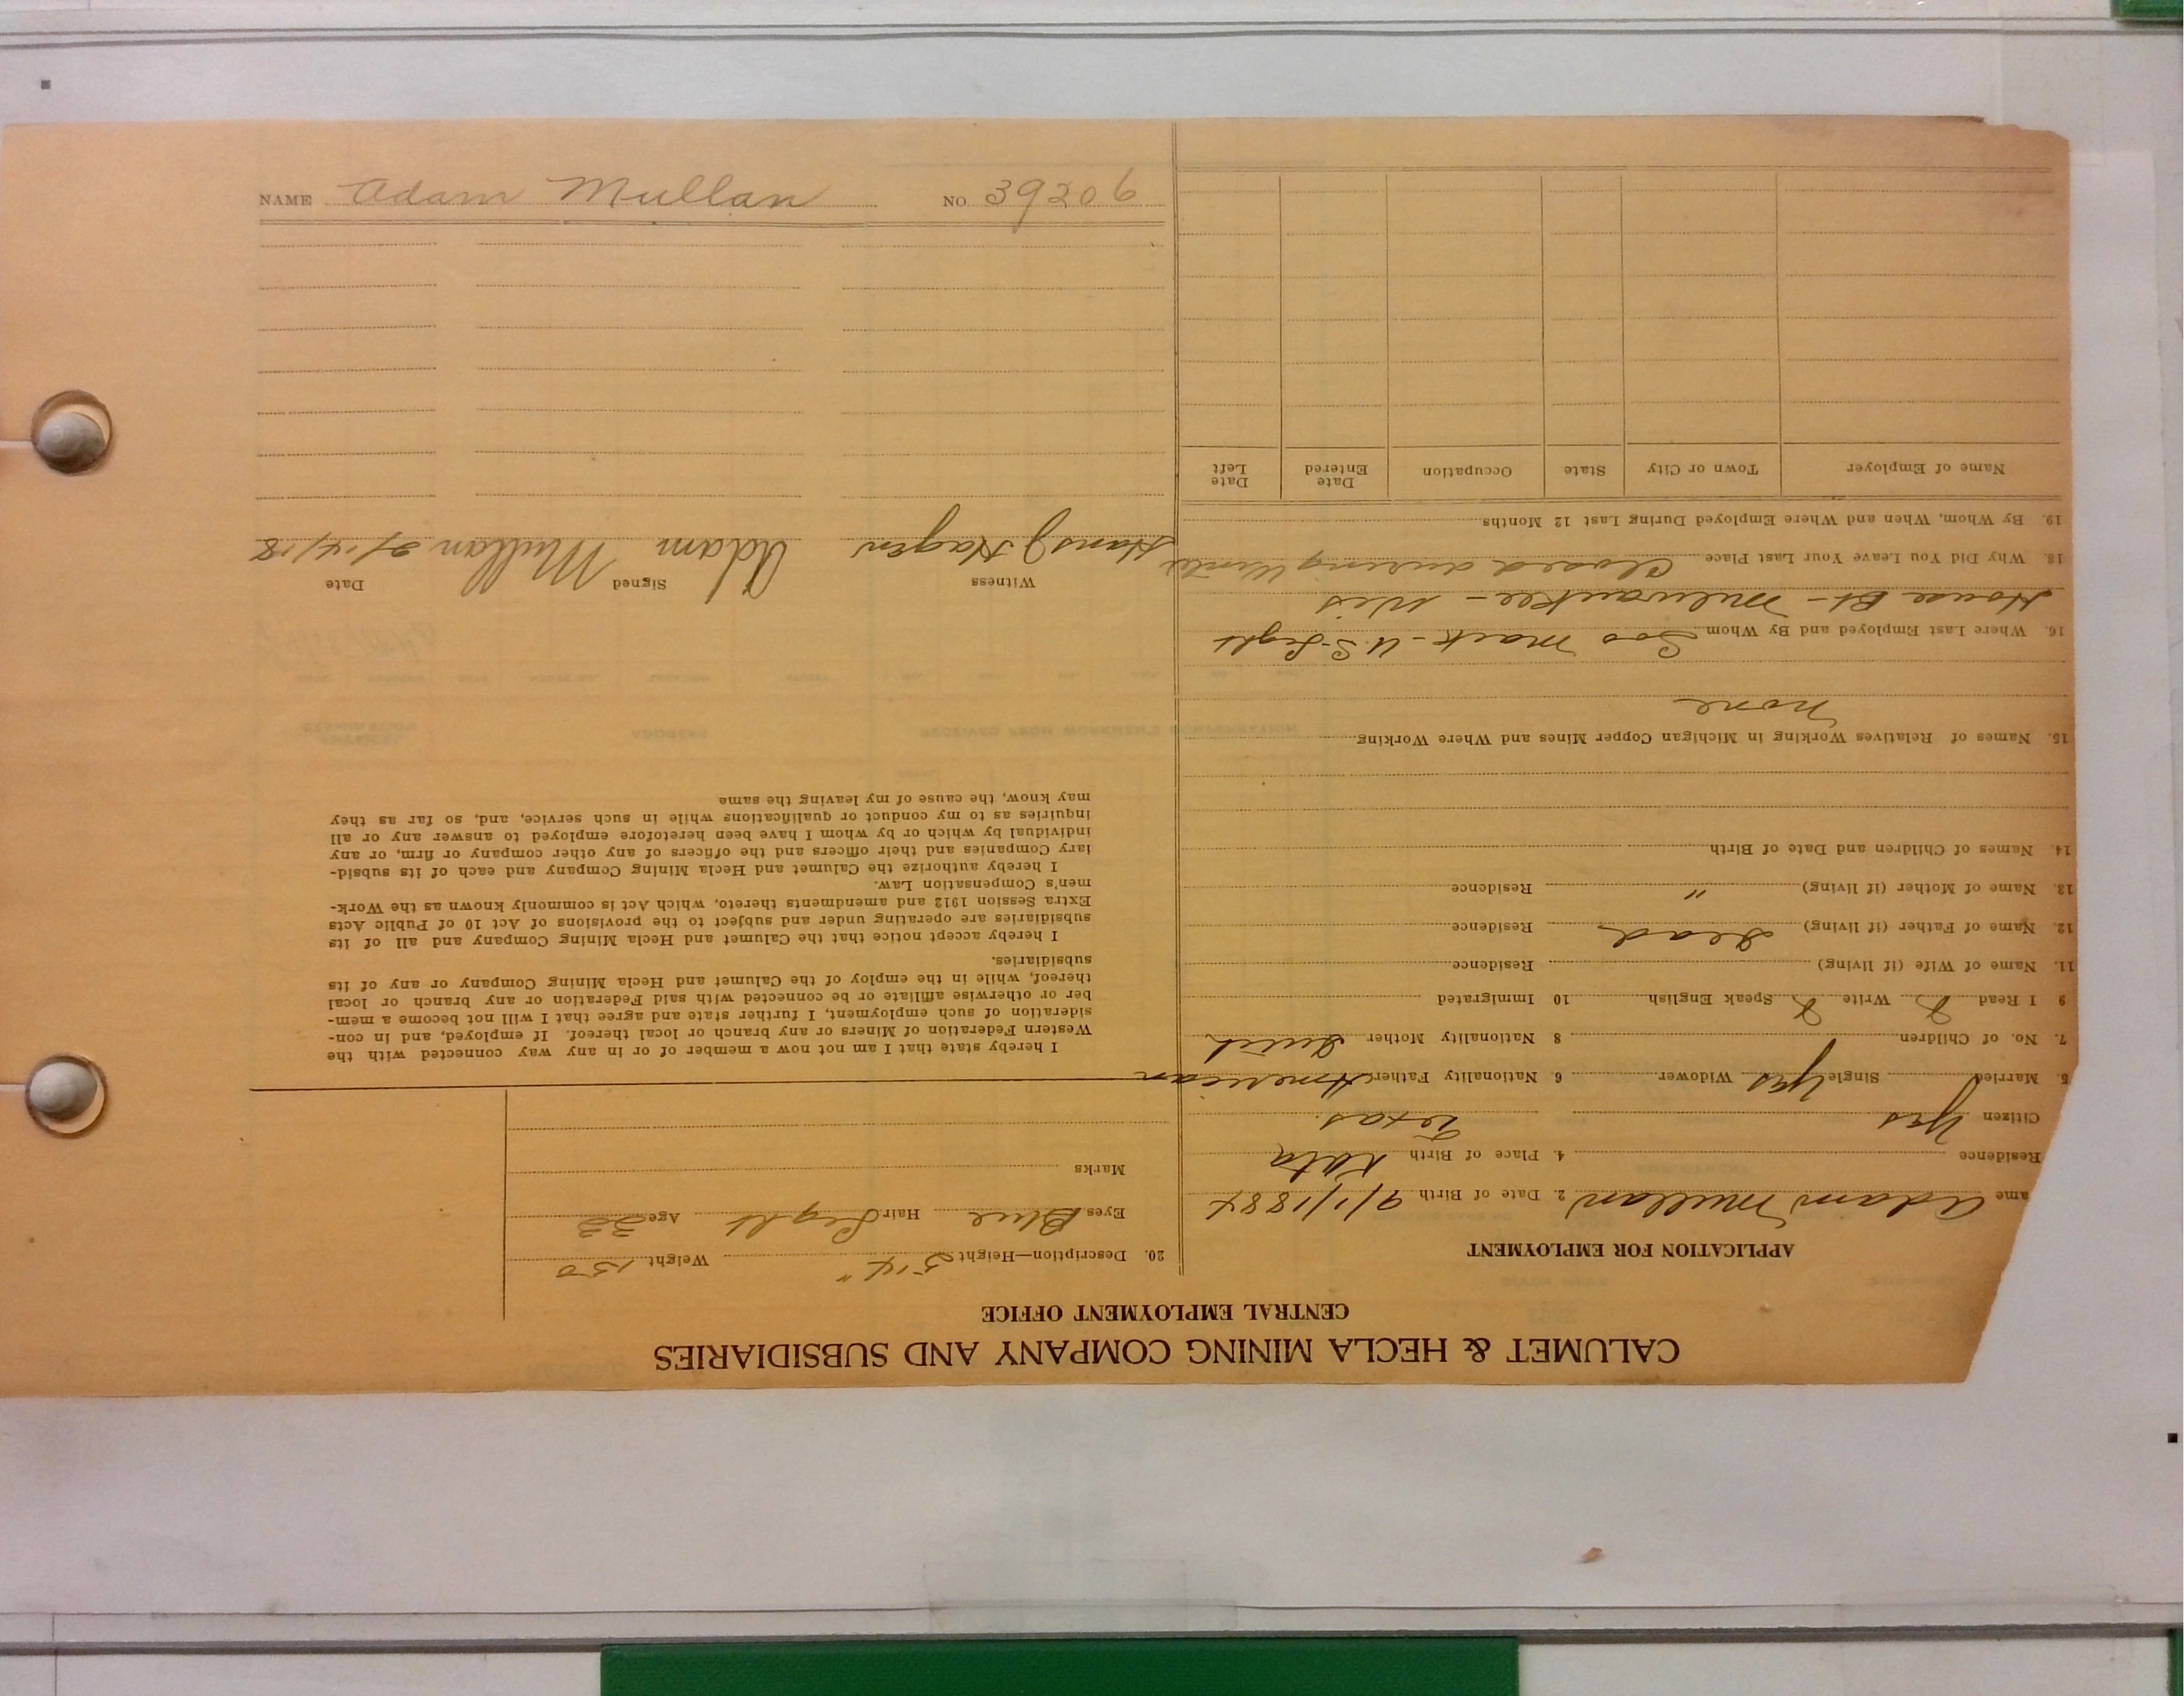 CALUMET & HECLA MINING COMPANY AND SUBSIDIARIES
CENTRAL EMPLOYMENT OFFICE
APPLICATION FOR EMPLOYMENT
ame Adam Mullan 2. Date of Birth 9/1/1884
Residence 4. Place of Birth Kata
Texas.
Citizen Yes
5. Married Single Yes Widower 6. Nationality Father American
7. No. of Children 8 Nationality Mother
9 I Read Write Speak English 10 Immigrated
11. Name of Wife (if living) Residence
12. Name of Father (if living) Dead Residence
13. Name of Mother (if living) " Residence
14. Names of Children and Date of Birth
15. Names of Relatives Working in Michigan Copper Mines and Where Working
None
16. Where Last Employed and By Whom Soo Mack - U.S. Light
House Bt - Milwaukee - Wis
18. Why Did You Leave Your Last Place Closed during Winter
19. By Whom, When and Where Employed During Last 12 Months
Name of Employer Town or City State Occupation Date Entered Date Left
20. Description—Height 5'4" Weight 150
Eyes Blue Hair Light Age 33
Marks
I hereby state that I am not now a member of or in any way connected with the
Western Federation of Miners or any branch or local thereof. If employed, and in con-
sideration of such employment, I further state and agree that I will not become a mem-
ber or otherwise affiliate or be connected with said Federation or any branch or local
thereof, while in the employ of the Calumet and Hecla Mining Company or any of its
subsidiaries.
I hereby accept notice that the Calumet and Hecla Mining Company and all of its
subsidiaries are operating under and subject to the provisions of Act 10 of Public Acts
Extra Session 1912 and amendments thereto, which Act is commonly known as the Work-
men's Compensation Law.
I hereby authorize the Calumet and Hecla Mining Company and each of its subsid-
iary Companies and their officers and the officers of any other company or firm, or any
individual by which or by whom I have been heretofore employed to answer any or all
inquiries as to my conduct or qualifications while in such service, and, so far as they
may know, the cause of my leaving the same
Witness Signed Date
Hans J Hagen Adam Mullan 2/14/18
NAME Adam Mullan NO 39206